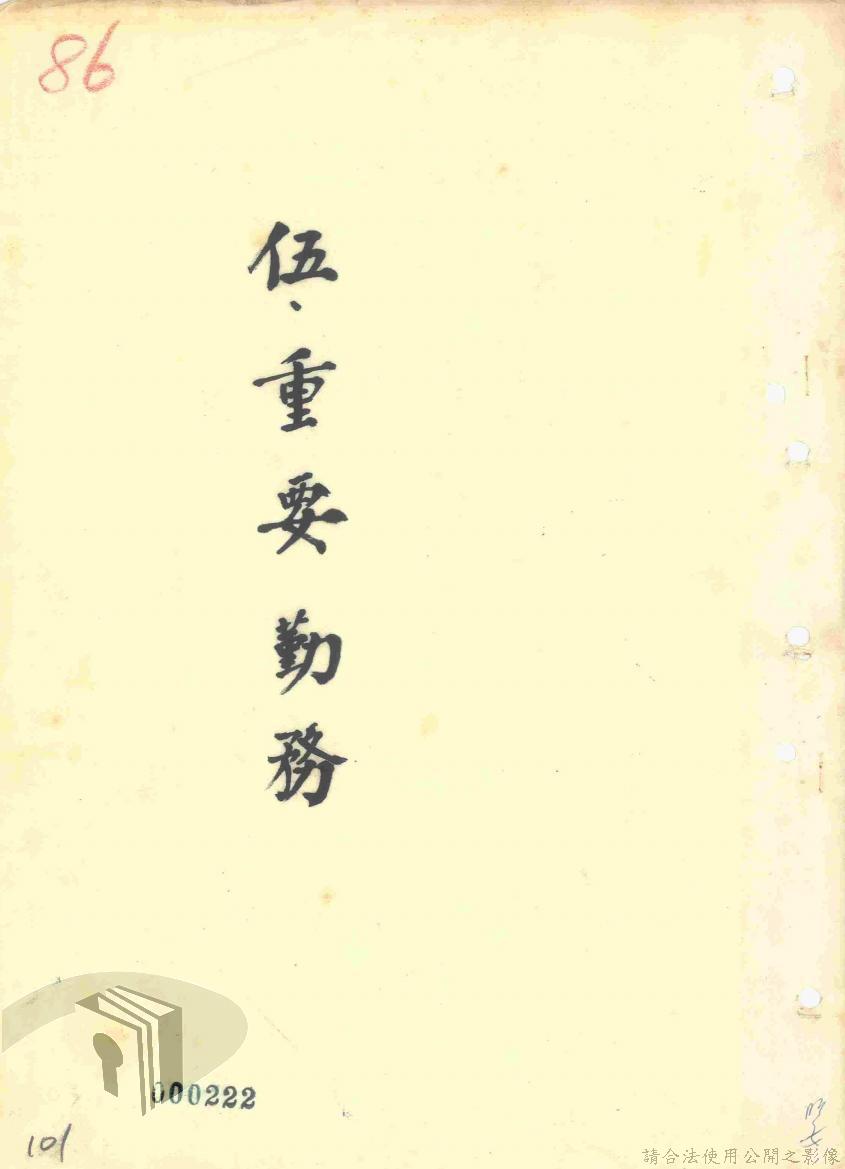 86
伍、重要勤務
000222
101
請合法使用公開之影像